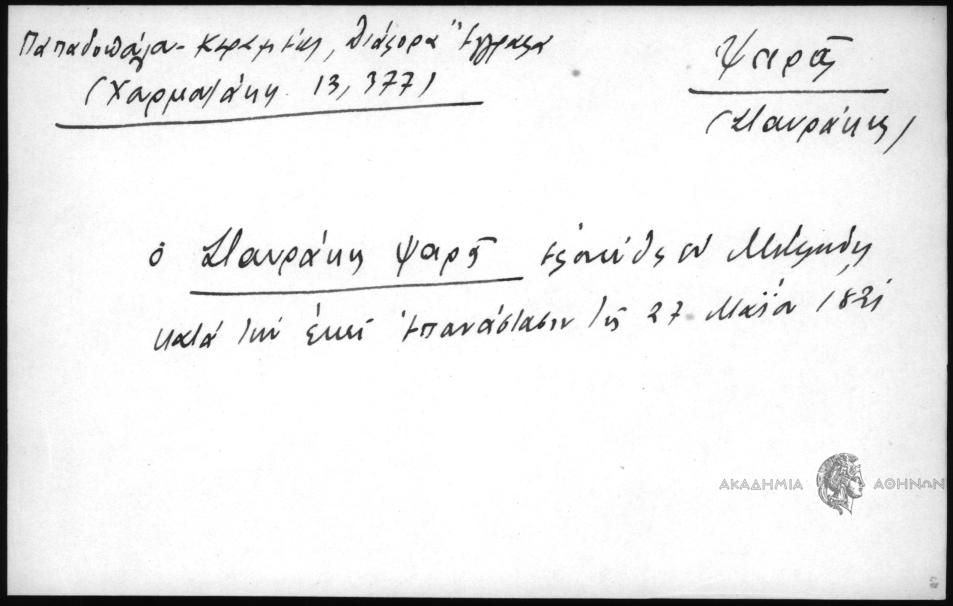 Παπαδοπούλου-Κεραμέως, Διάφορα Ἔγγραφα
(Χαρματάκης 13, 377)
Ψαρᾶς
(Σταυράκης)
ὁ Σταυράκης Ψαρᾶς ἐν Μυτιλήνῃ
κατά τήν ἐκεῖ ἐπανάστασιν τῆς 27 Μαΐου 1821
ΑΚΑΔΗΜΙΑ ΑΘΗΝΩΝ